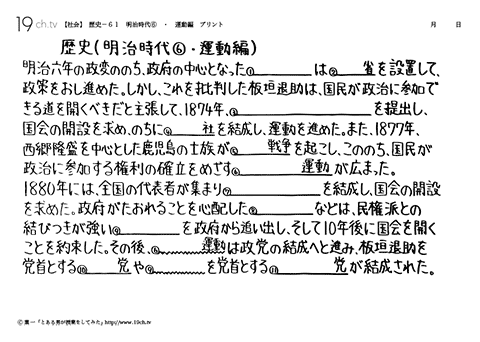 19ch.tv 【社会】 歴史－61 明治時代⑥ ・ 運動編 プリント 月 日
歴史(明治時代⑥・運動編)
明治六年の政変ののち、政府の中心となった①________は②____省を設置して、
政策をおし進めた。しかし、これを批判した板垣退助は、国民が政治に参加で
きる道を開くべきだと主張して、1874年、③________________を提出し、
国会の開設を求め、のちに④____社を結成し、運動を進めた。また、1877年、
西郷隆盛を中心とした鹿児島の士族が⑤____戦争を起こし、こののち、国民が
政治に参加する権利の確立をめざす⑥________運動が広まった。
1880年には、全国の代表者が集まり⑦____________を結成し、国会の開設
を求めた。政府がたおれることを心配した⑧________などは、民権派との
結びつきが強い⑨________を政府から追い出し、そして10年後に国会を開く
ことを約束した。その後、⑥____運動は政党の結成へと進み、板垣退助を
党首とする⑩____党や⑨______を党首とする⑪________党が結成された。
© 葉一「とある男が授業をしてみた」http://www.19ch.tv